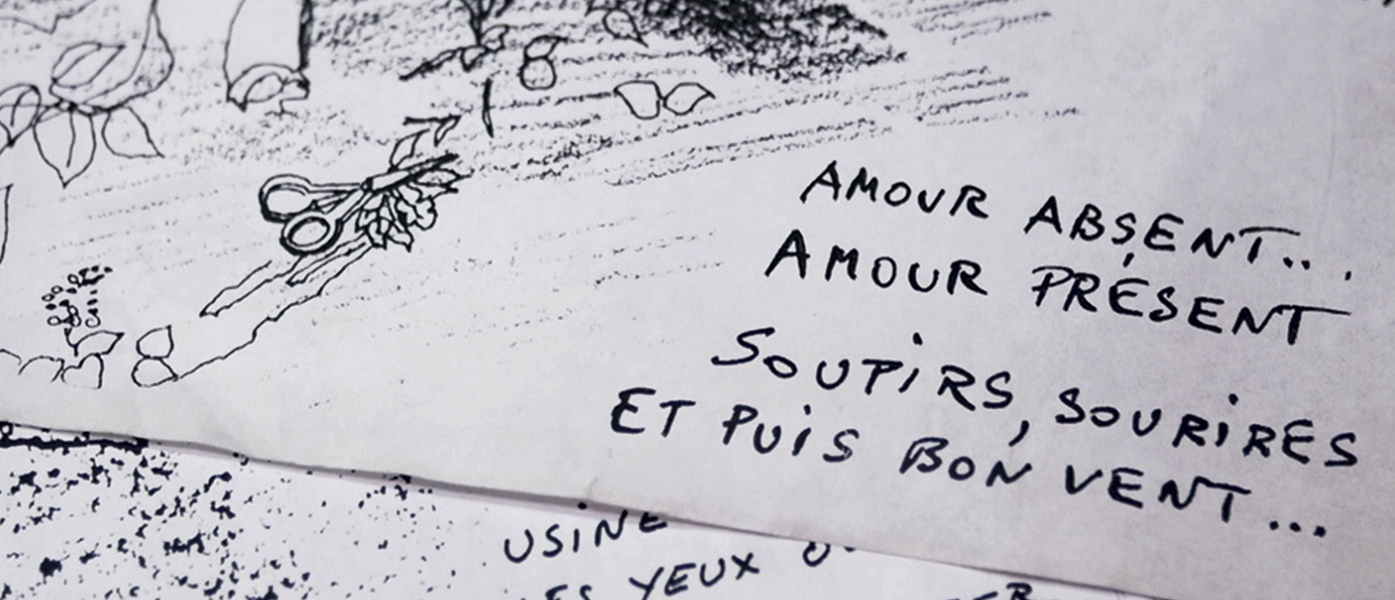 AMOUR ABSENT...
AMOUR PRÉSENT
SOUPIRS, SOURIRES
ET PUIS BON VENT...
USINE
YEUX